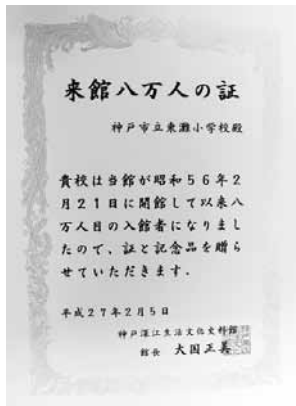 来館八万人の証
神戸市立東灘小学校殿
貴校は当館が昭和56年2
月21日に開館して以来八
万人目の入館者になりまし
たので、証と記念品を贈ら
せていただきます．
平成27年2月5日
神戸深江生活文化史料館
館長 大国正美